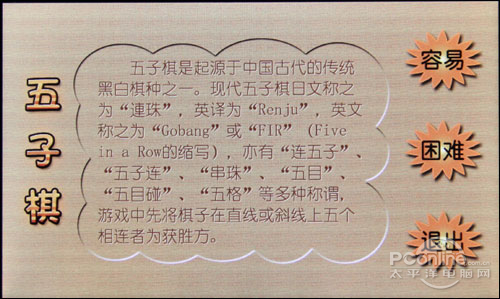 五子棋
五子棋是起源于中国古代的传统
黑白棋种之一。现代五子棋日文称之
为“連珠”，英译为“Renju”，英文
称之为“Gobang”或“FIR”（Five
in a Row的缩写），亦有“连五子”、
“五子连”、“串珠”、“五目”、
“五目碰”、“五格”等多种称谓，
游戏中先将棋子在直线或斜线上五个
相连者为获胜方。
容易
困难
退出
PConline
太平洋电脑网